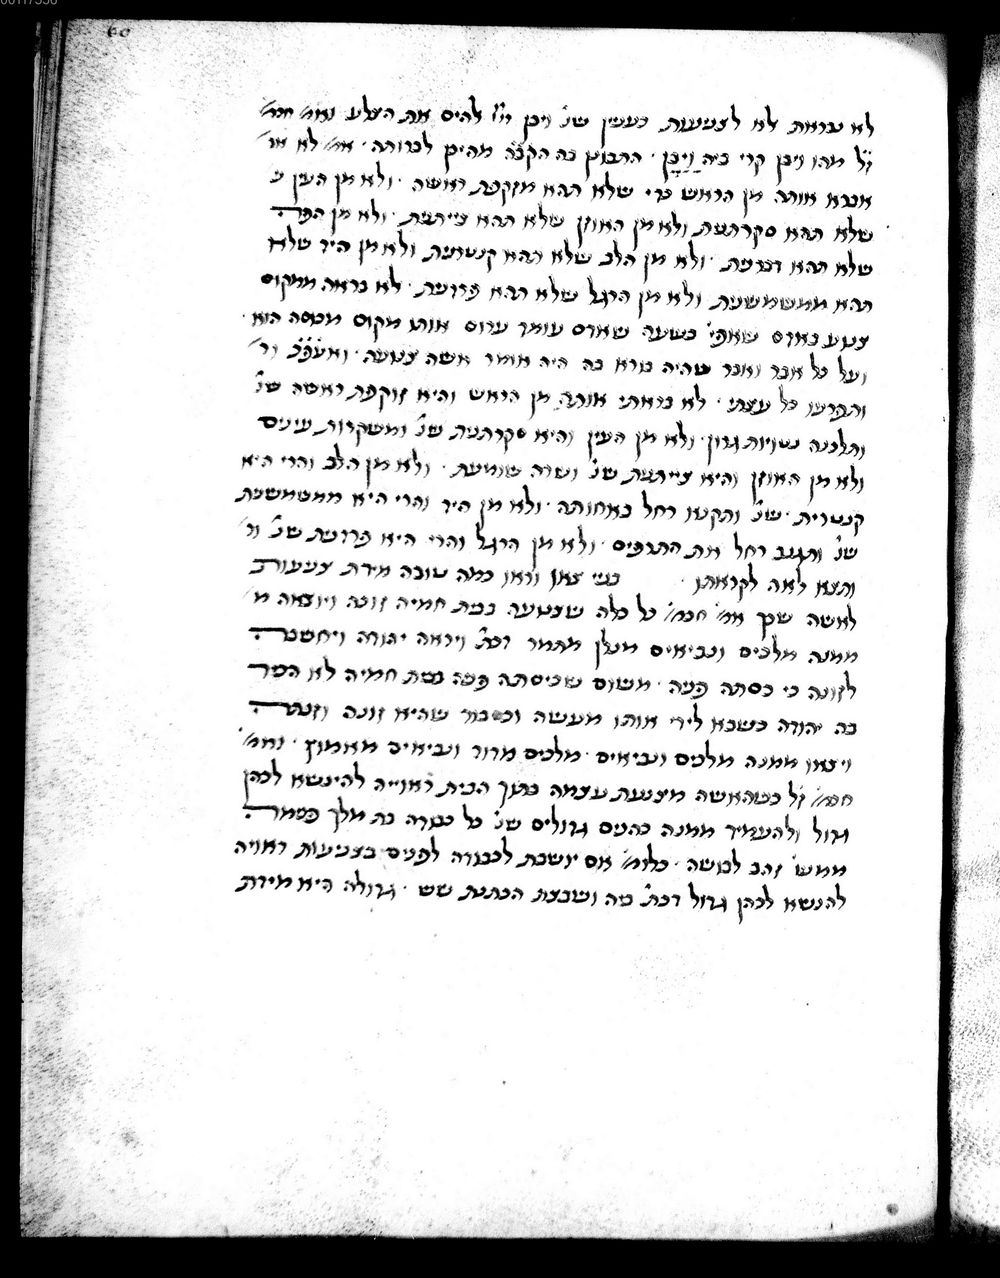 60
לא נבראת אלא לצניעות כענין שנ' ויבן יי' אלהים את הצלע ואמ' חכמ'
ז'ל מהו ויבן קרי ביה וַיָבֶן · התבונן בה הקב'ה מהיכן לבראתה · אמ' לא אם
אברא אותה מן הראש כדי שלא תהא מזקפת ראשה · ולא מן העין
שלא תהא סקרתנית ולא מן האוזן שלא תהא צייתנית · ולא מן הפה
שלא תהא דברנית · ולא מן הלב שלא תהא קנטרנית ולא מן היד שלא
תהא ממשמשנית ולא מן הרגל שלא תהא פרדנית · אלא בראה ממקום
צנוע באדם שאפי' בשעה שאדם עומד ערום אותו מקום מכוסה הוא ·
ועל כל אבר ואבר שהיה בורא בה היה אומר אשה צנועה · ואעפ'כ
ותפרעו כל עצתי · לא בראתי אותה מן הראש והיא זוקפת ראשה שנ'
ותלכנה נטויות גרון · ולא מן העין והיא סקרתנית שנ' ומשקרות עינים
ולא מן האוזן והיא צייתנית שנ' ושרה שומעת · ולא מן הלב והרי היא
קנטרנית · שנ' ותקנא רחל באחותה · ולא מן היד והרי היא ממשמשנית
שנ' ותגנב רחל את התרפים · ולא מן הרגל והרי היא פרדנית שנ'
ותצא לאה לקראתו · בני צאן וראו כמה טובה מידת צניעות
לאשה שכך אמ' חכמ' כל כלה שצנועה בבית חמיה זוכה ויוצאה
ממנה מלכים ונביאים מנלן מתמר דכת' ויראה יהודה ויחשבה
לזונה כי כסתה פניה · משום שכיסתה פניה בבית חמיה לא הכיר
בה יהודה כשבא לידי אותו מעשה וכסבור שהיא זונה וזכתה
ויצאו ממנה מלכים ונביאים · מלכים מדוד ונביאים מאמוץ · ואמ'
חכמ' ז'ל כשהאשה מצנעת עצמה בתוך הבית ראוייה להינשא לכהן
גדול ולהעמיד ממנה כהנים גדולים שנ' כל כבודה בת מלך פנימה
ממש' זהב לבושה · כלומ' אם יושבת לכבודה לפנים בצניעות ראויה
להנשא לכהן גדול דכת' ביה ושבצת הכתנת שש · גדולה היא מידת